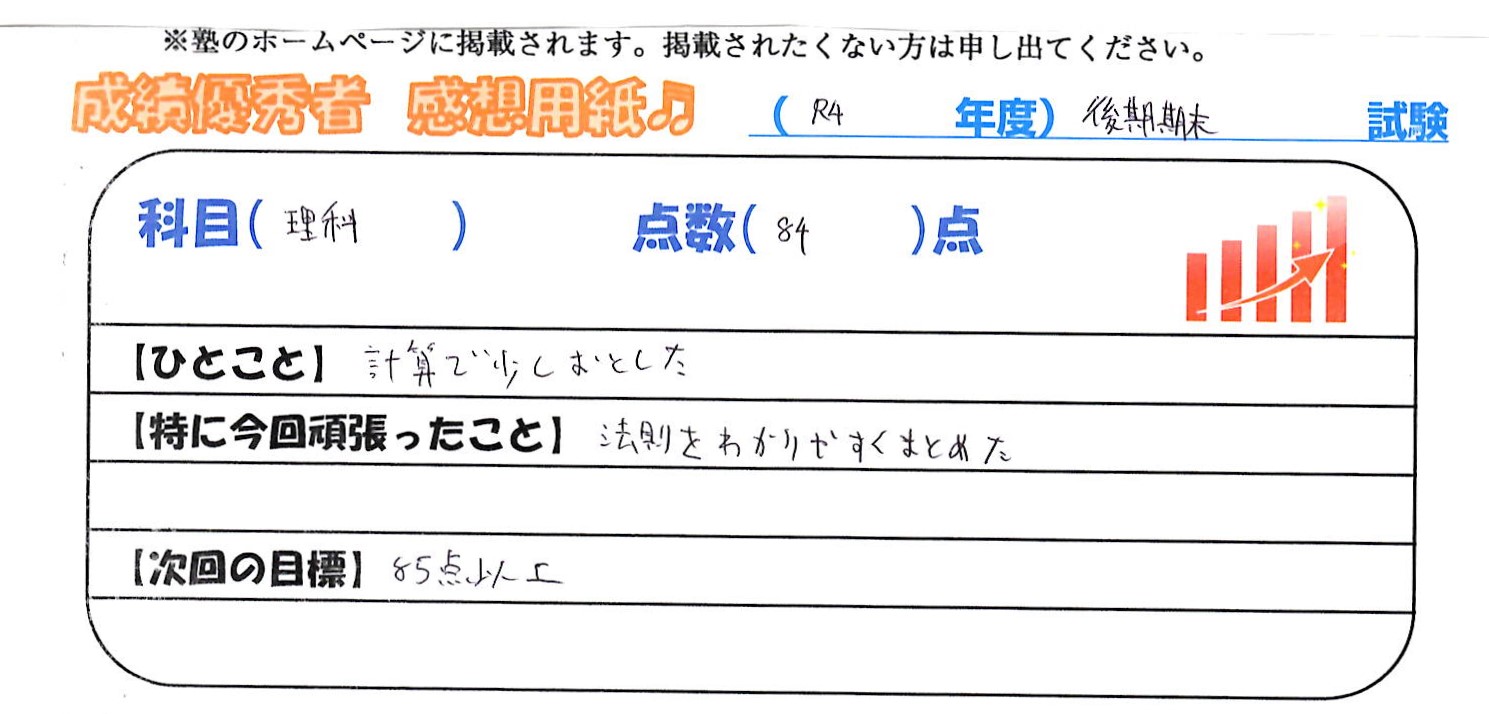 ※塾のホームページに掲載されます。掲載されたくない方は申し出てください。
成績優秀者 感想用紙♫ (R4 年度) 後期期末 試験
科目(理科) 点数(84)点
【ひとこと】計算で少しおとした
【特に今回頑張ったこと】法則をわかりやすくまとめた
【次回の目標】85点以上